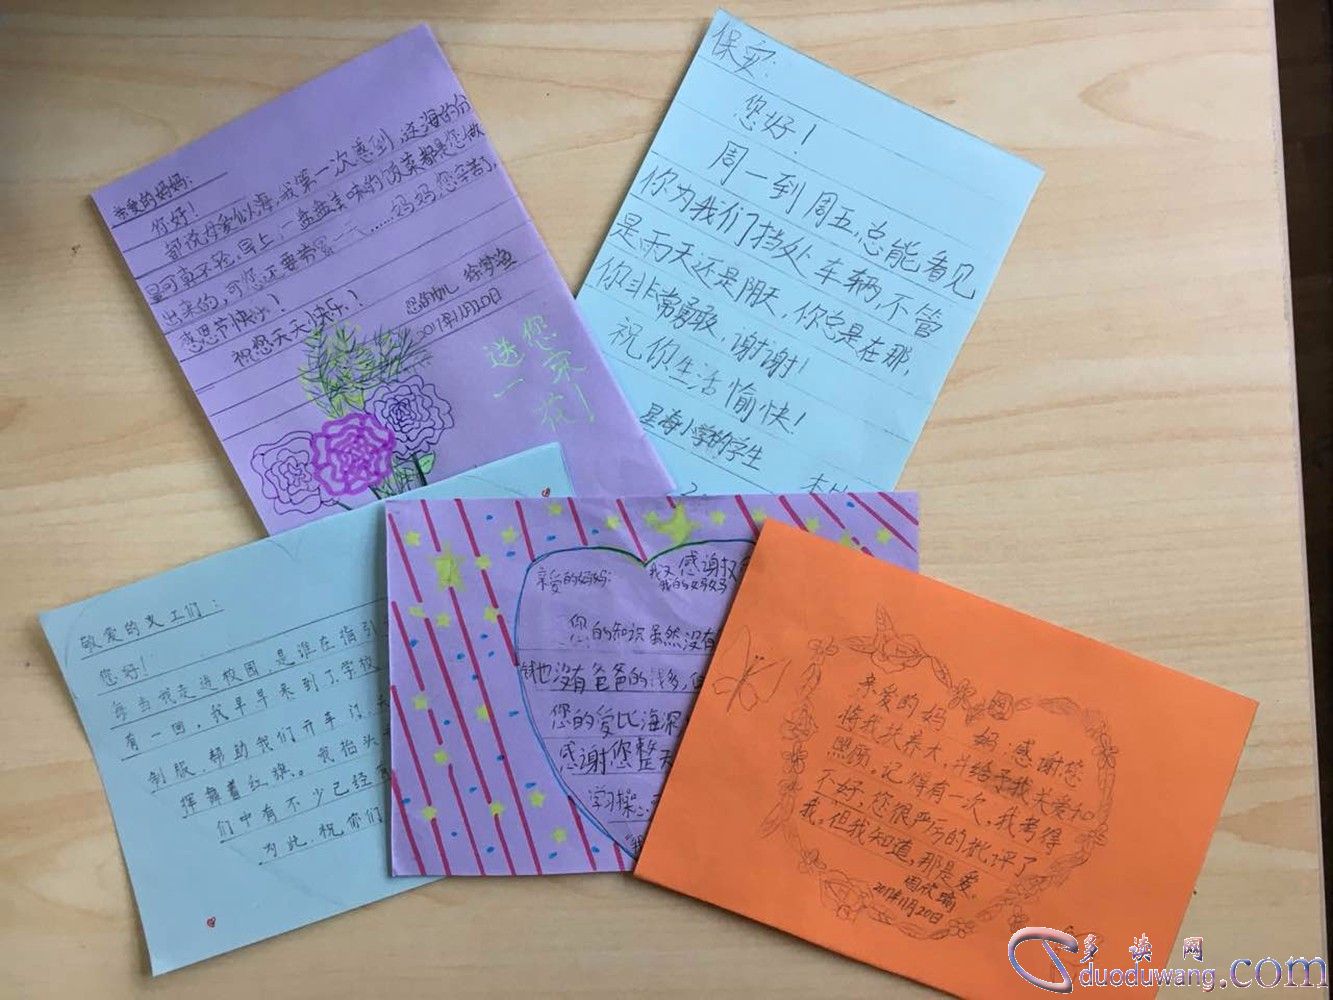 亲爱的妈妈:
你好!
都说母爱似海,我第一次感到,这海的分
量可真不轻,早上,一盘盘美味的饭菜都是您做
出来的,可您还要劳累一天……妈妈,您辛苦了,
感恩节快乐!
祝您天天快乐!
2017年11月20日
送您一
花
保安:
您好!
周一到周五,总能看见
你为我们挡处车辆,不管
是雨天还是阴天,你总是在那,
你非常勇敢,谢谢!
祝你生活愉快!
星海小学的学生
敬爱的义工们:
您好!
每当我走进校园,是谁在指引
有一回,我早早来到了学校
制服,帮助我们开车门,关
挥舞着红旗。我抬头
们中有不少已经
为此,祝你们
亲爱的妈妈:
感谢
我的妈妈
您的知识虽然没有
也没有爸爸的钱多,但
您的爱比海深
感谢您整天
学习操心
亲爱的妈妈:感谢您
将我扶养大,并给予我关爱和
照顾。记得有一次,我考得
不好,您很严厉的批评了
我,但我知道,那是爱。
2017年11月20日
多读网
duoduwang.com